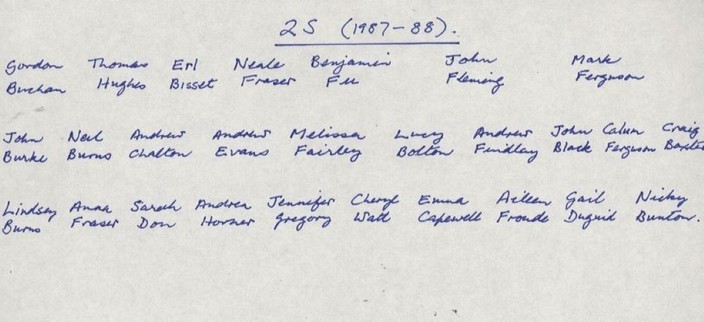 2S (1987-88).
Gordon Thomas Erl Neale Benjamin John Mark
Buchan Hughes Bisset Fraser Fu Fleming Ferguson
John Neil Andrew Andrew Melissa Lucy Andrew John Calum Craig
Burke Burns Chalton Evans Fairley Bolton Findlay Black Ferguson Baxter
Lindsay Anna Sarah Andrea Jennifer Cheryl Emma Aileen Gail Nicky
Burns Fraser Don Horner Gregory Watt Capewell Froude Duguid Bunton.